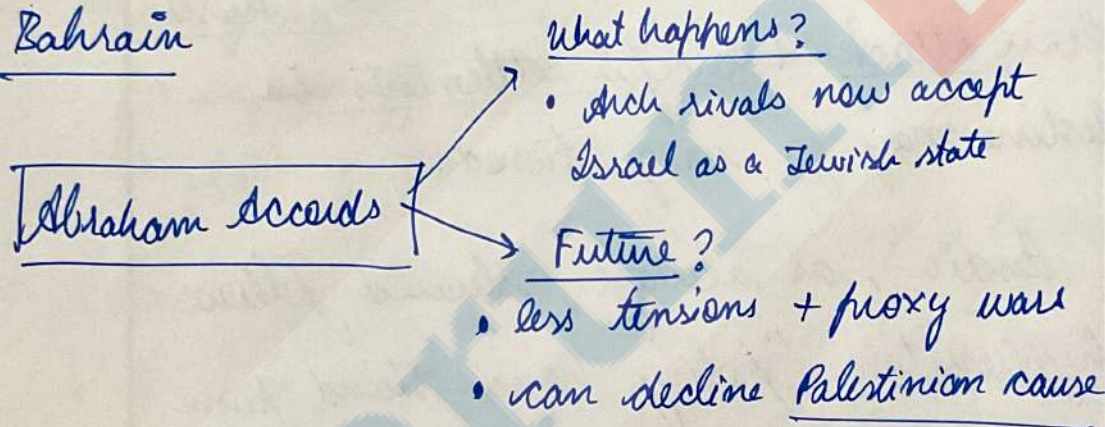 Bahrain
Abraham Accords
What happens?
• Arch rivals now accept
Israel as a Jewish state
Future?
• less tensions + proxy wars
• can decline Palestinian cause